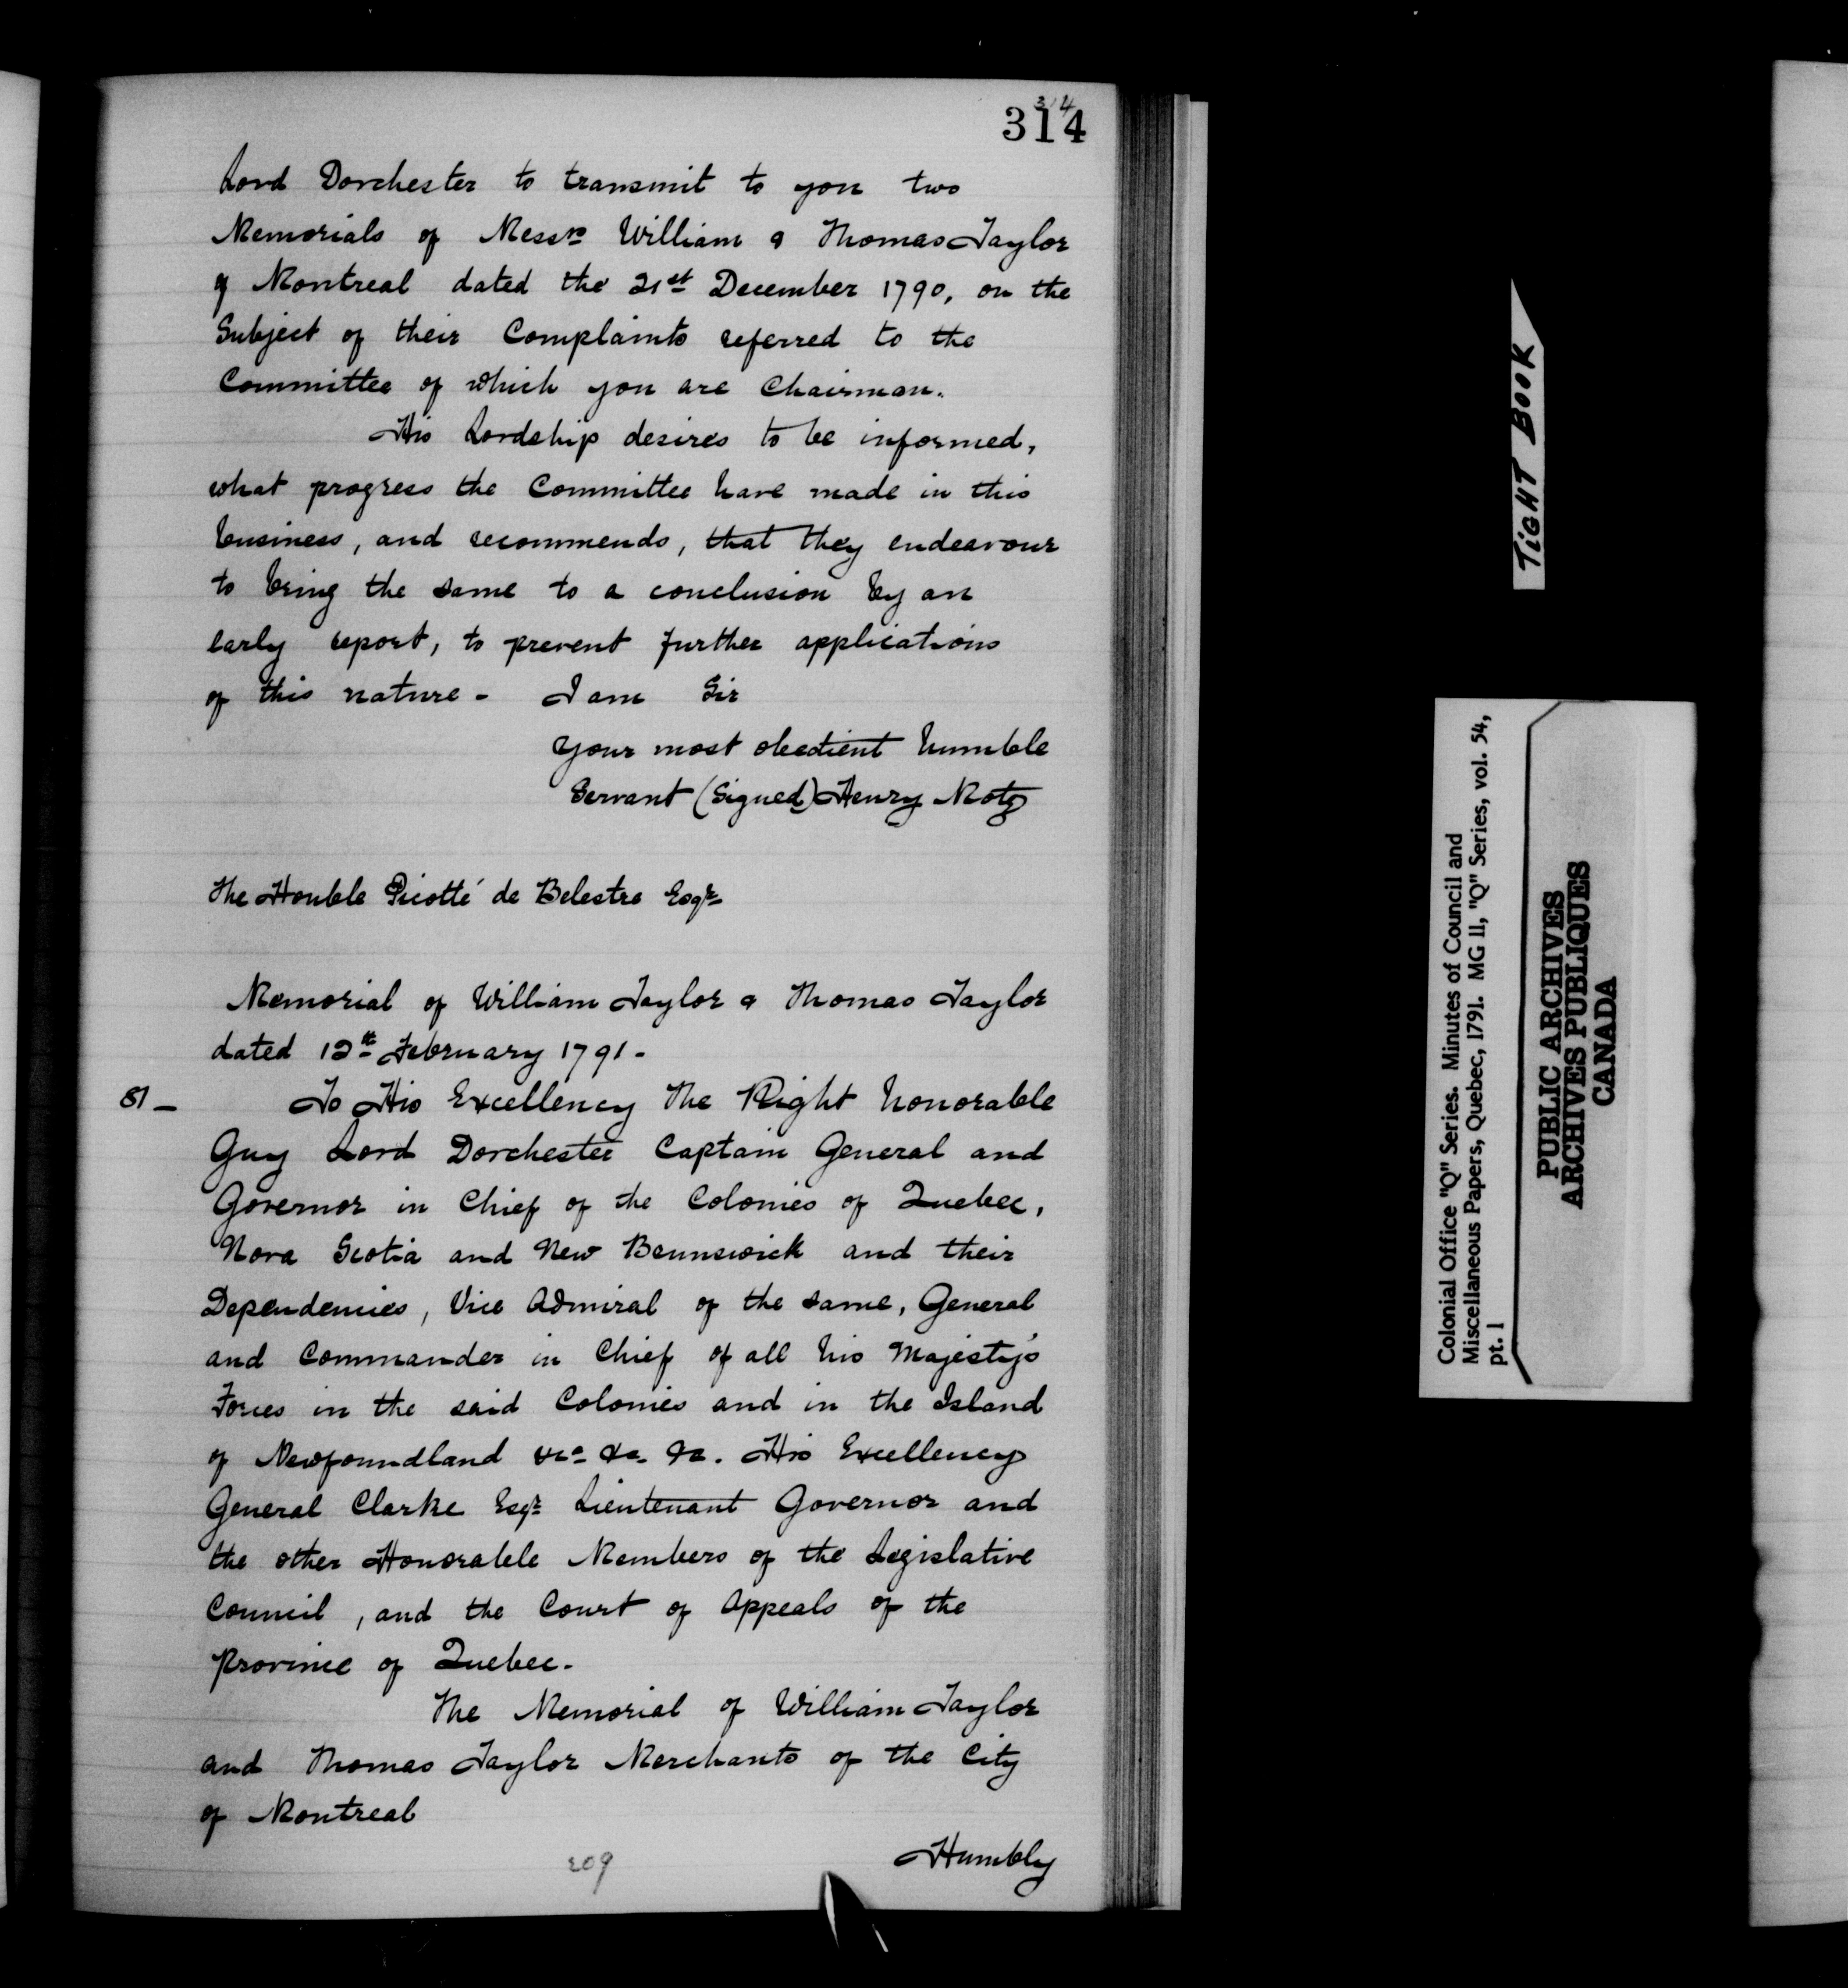 314
314
Lord Dorchester to transmit to you two
Memorials of Messrs William & Thomas Taylor
of Montreal dated the 21st December 1790, on the
Subject of their Complaints referred to the
Committee of which you are Chairman.
His Lordship desires to be informed,
what progress the Committee have made in this
business, and recommends, that they endeavour
to bring the same to a conclusion by an
early report, to prevent further applications
of this nature - I am Sir
Your most obedient humble
Servant (Signed) Henry Motz
The Honble Picotté de Belestre Esqr
Memorial of William Taylor & Thomas Taylor
dated 12th February 1791 -
81 - To His Excellency The Right honorable
Guy Lord Dorchester Captain General and
Governor in Chief of the Colonies of Quebec,
Nova Scotia and New Brunswick and their
Dependencies, Vice Admiral of the same, General
and Commander in Chief of all his Majesty's
Forces in the said Colonies and in the Island
of Newfoundland &c. &c. &c. His Excellency
General Clarke Esqr Lieutenant Governor and
the other Honorable Members of the Legislative
Council, and the Court of Appeals of the
Province of Quebec.
The Memorial of William Taylor
and Thomas Taylor Merchants of the City
of Montreal
Humbly
209
TIGHT BOOK
Colonial Office "Q" Series. Minutes of Council and
Miscellaneous Papers, Quebec, 1791. MG 11, "Q" Series, vol. 54,
pt. 1
PUBLIC ARCHIVES
ARCHIVES PUBLIQUES
CANADA